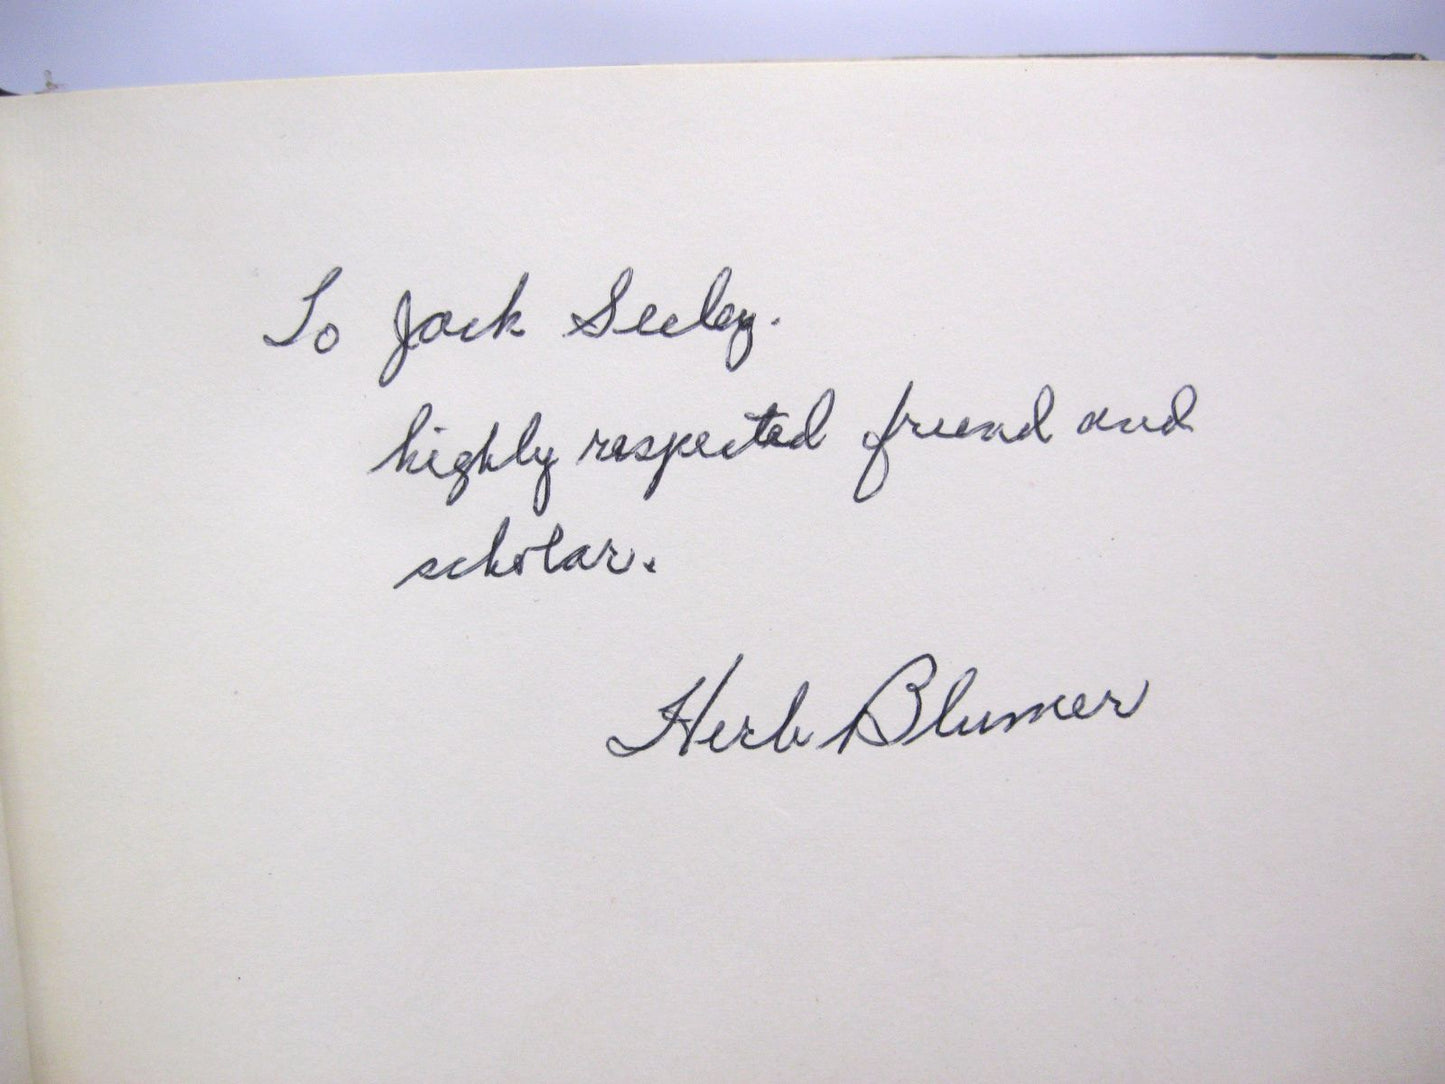 To Jack Seeley.
highly respected friend and
scholar.
Herb Blumer